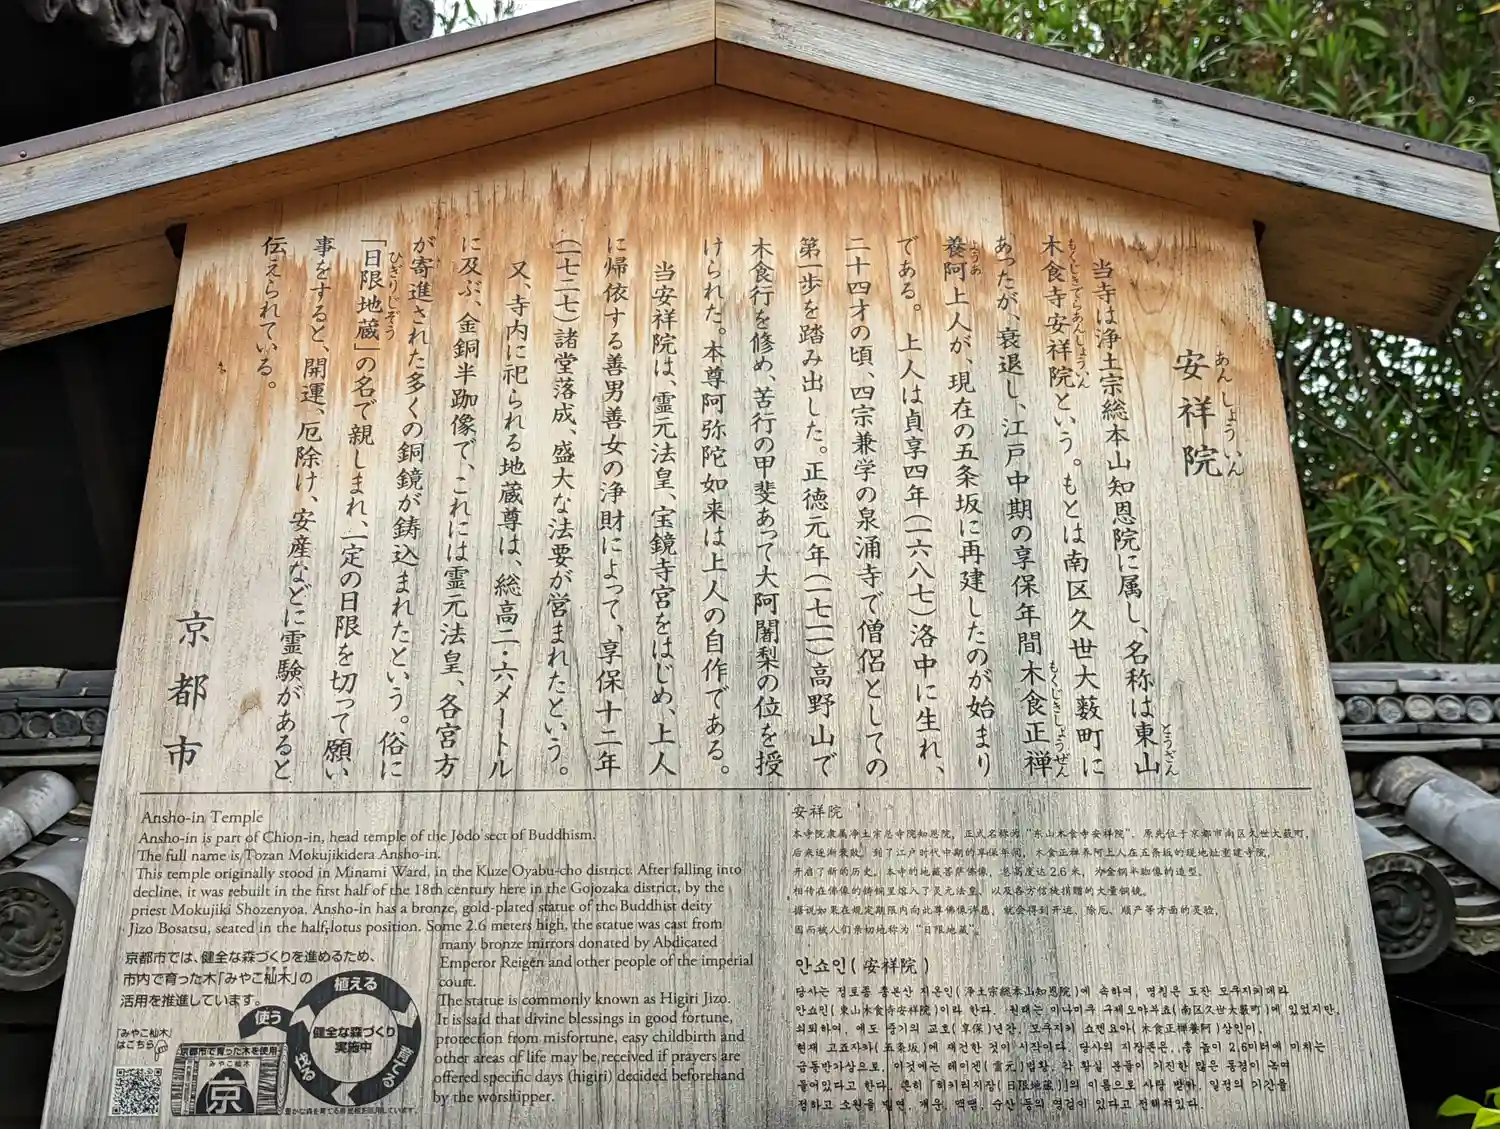 安祥院
あんしょういん
当寺は浄土宗総本山知恩院に属し、名称は東山
とうざん
木食寺安祥院という。もとは南区久世大薮町に
もくじきでらあんしょういん
あったが、衰退し、江戸中期の享保年間木食正禅
もくじきしょうぜん
養阿上人が、現在の五条坂に再建したのが始まり
ようあ
である。上人は貞享四年(一六八七)洛中に生れ、
二十四才の頃、四宗兼学の泉涌寺で僧侶としての
第一歩を踏み出した。正徳元年(一七一一)高野山で
木食行を修め、苦行の甲斐あって大阿闍梨の位を授
けられた。本尊阿弥陀如来は上人の自作である。
当安祥院は、霊元法皇、宝鏡寺宮をはじめ、上人
に帰依する善男善女の浄財によって、享保十二年
(一七二七)諸堂落成、盛大な法要が営まれたという。
又、寺内に祀られる地蔵尊は、総高二・六メートル
に及ぶ、金銅半跏像で、これには霊元法皇、各宮方
が寄進された多くの銅鏡が鋳込まれたという。俗に
「日限地蔵」の名で親しまれ、一定の日限を切って願い
ひぎりじぞう
事をすると、開運、厄除け、安産などに霊験があると
伝えられている。
京都市
Ansho-in Temple
Ansho-in is part of Chion-in, head temple of the Jodo sect of Buddhism.
The full name is Tozan Mokujikidera Ansho-in.
This temple originally stood in Minami Ward, in the Kuze Oyabu-cho district. After falling into
decline, it was rebuilt in the first half of the 18th century here in the Gojozaka district, by the
priest Mokujiki Shozenyoa. Ansho-in has a bronze, gold-plated statue of the Buddhist deity
Jizo Bosatsu, seated in the half-lotus position. Some 2.6 meters high, the statue was cast from
many bronze mirrors donated by Abdicated
Emperor Reigen and other people of the imperial
court.
The statue is commonly known as Higiri Jizo.
It is said that divine blessings in good fortune,
protection from misfortune, easy childbirth and
other areas of life may be received if prayers are
offered specific days (higiri) decided beforehand
by the worshipper.
京都市では、健全な森づくりを進めるため、
市内で育った木「みやこ杣木」の
活用を推進しています。
「みやこ杣木」
はこちら
植える
育てる
伐る
使う
健全な森づくり
実施中
京都市で育った木を使用
みやこ杣木
京
安祥院
本寺院隶属净土宗总寺院知恩院，正式名称为“东山木食寺安祥院”。原先位于京都市南区久世大薮町，
后来逐渐衰败，到了江户时代中期的享保年间，木食正禅养阿上人在五条坂的现地址重建寺院，
开启了新的历史。本寺的地藏菩萨佛像，总高度达2.6米，为金铜半跏像的造型。
相传在佛像的铸铜里熔入了灵元法皇，以及各方信徒捐赠的大量铜镜。
据说如果在规定期限内向此尊佛像许愿，就会得到开运、除厄、顺产等方面的灵验，
因而被人们亲切地称为“日限地藏”。
안쇼인(安祥院)
당사는 정토종 총본산 지온인(浄土宗総本山知恩院)에 속하며, 명칭은 도잔 모쿠지키데라
안쇼인(東山木食寺安祥院)이라 한다. 원래는 미나미쿠 구제오야부쵸(南区久世大薮町)에 있었지만,
쇠퇴하여, 에도 중기의 교호(享保)년간, 모쿠지키 쇼젠요아(木食正禅養阿)상인이,
현재 고죠자카(五条坂)에 재건한 것이 시작이다. 당사의 지장존은, 총 높이 2.6미터에 미치는
금동반가상으로, 이것에는 레이겐(霊元)법황, 각 황실 분들이 기진한 많은 동경이 녹여
들어있다고 한다. 흔히 「히기리지장(日限地蔵)」의 이름으로 사랑 받아, 일정의 기간을
정하고 소원을 빌면, 개운, 액땜, 순산 등의 영검이 있다고 전해져있다.